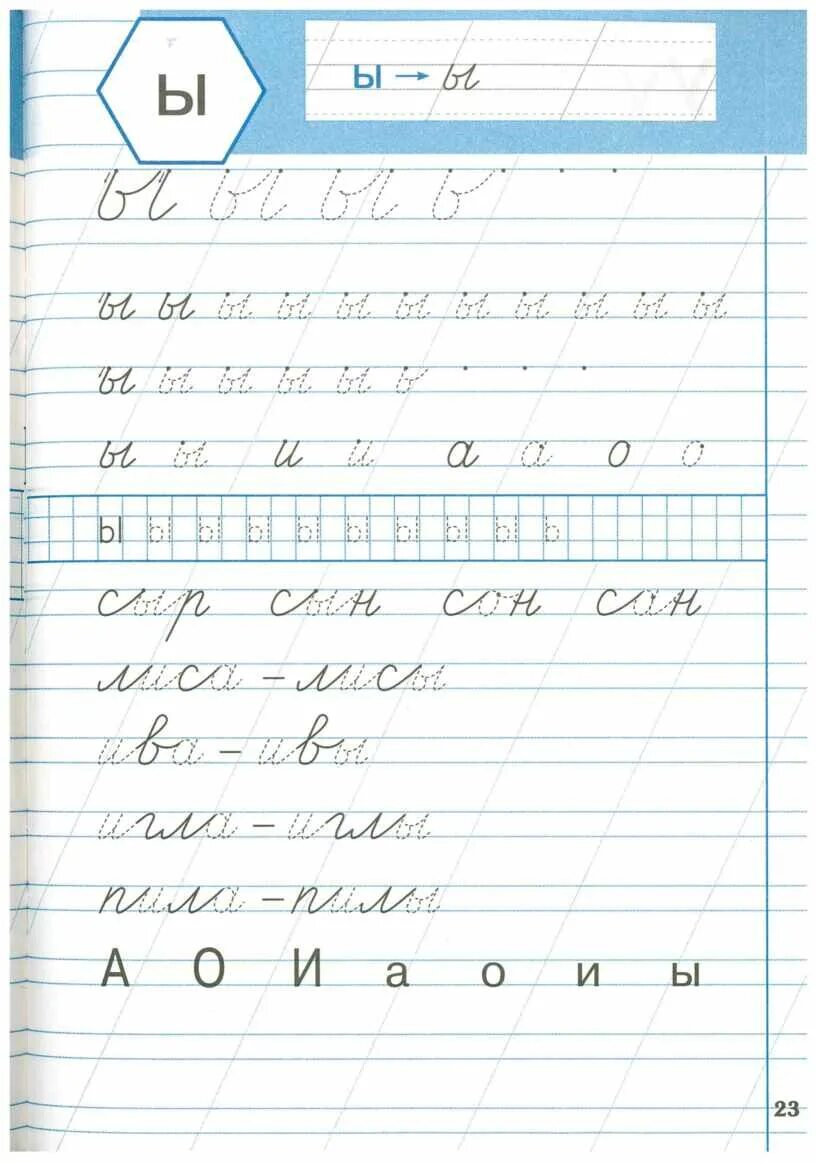 ы
ы → ы
ы ы ы ь
ы ы ы ы ы ы ы ы ы ы ы
ы ы ы ы ы ь
ы ы и и а а о о
ы ы ы ы ы ы ы ы ы ь
сыр сын сон сан
лиса – лисы
ива – ивы
игла – иглы
пила – пилы
А О И а о и ы
23